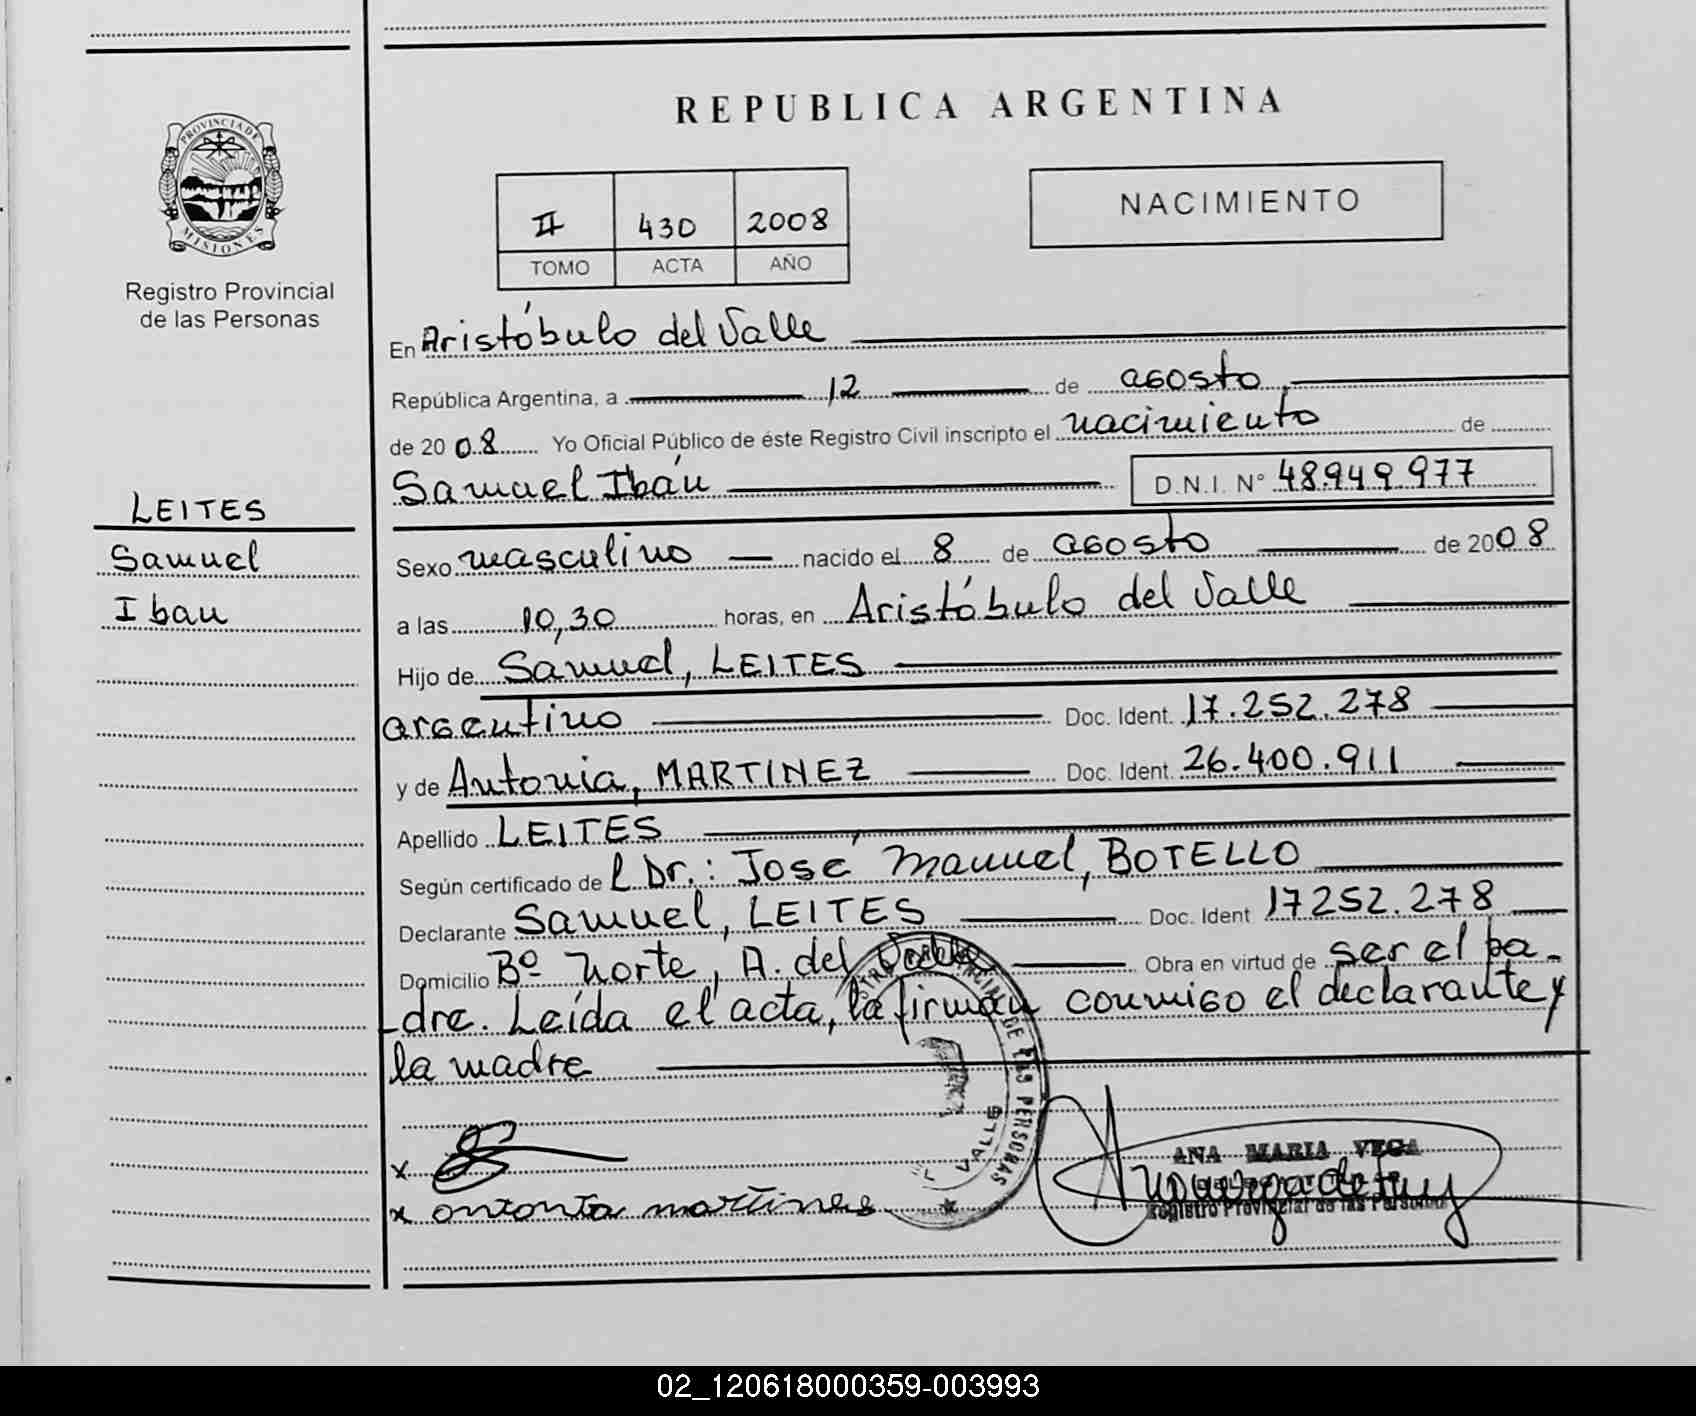 REPUBLICA ARGENTINA
PROVINCIA DE
MISIONES
Registro Provincial
de las Personas
II 430 2008
TOMO ACTA AÑO
NACIMIENTO
En Aristóbulo del Valle
República Argentina, a 12 de agosto
de 2008 Yo Oficial Público de éste Registro Civil inscripto el nacimiento de
Samuel Ibán D.N.I. N° 48.949.977
LEITES
Samuel
Iban
Sexo masculino nacido el 8 de agosto de 2008
a las 10,30 horas, en Aristóbulo del Valle
Hijo de Samuel, LEITES
argentino Doc. Ident. 17.252.278
y de Antonia, MARTINEZ Doc. Ident. 26.400.911
Apellido LEITES
Según certificado del Dr.: José Manuel, BOTELLO
Declarante Samuel, LEITES Doc. Ident 17252.278
Domicilio Bº Norte, A. del Valle Obra en virtud de ser el pa-
dre. Leída el acta, la firman conmigo el declarante y
la madre
DE LAS PERSONAS
VALLE
x
x antonia martines
ANA MARIA VEGA
Registro Provincial de las Personas
02_120618000359-003993